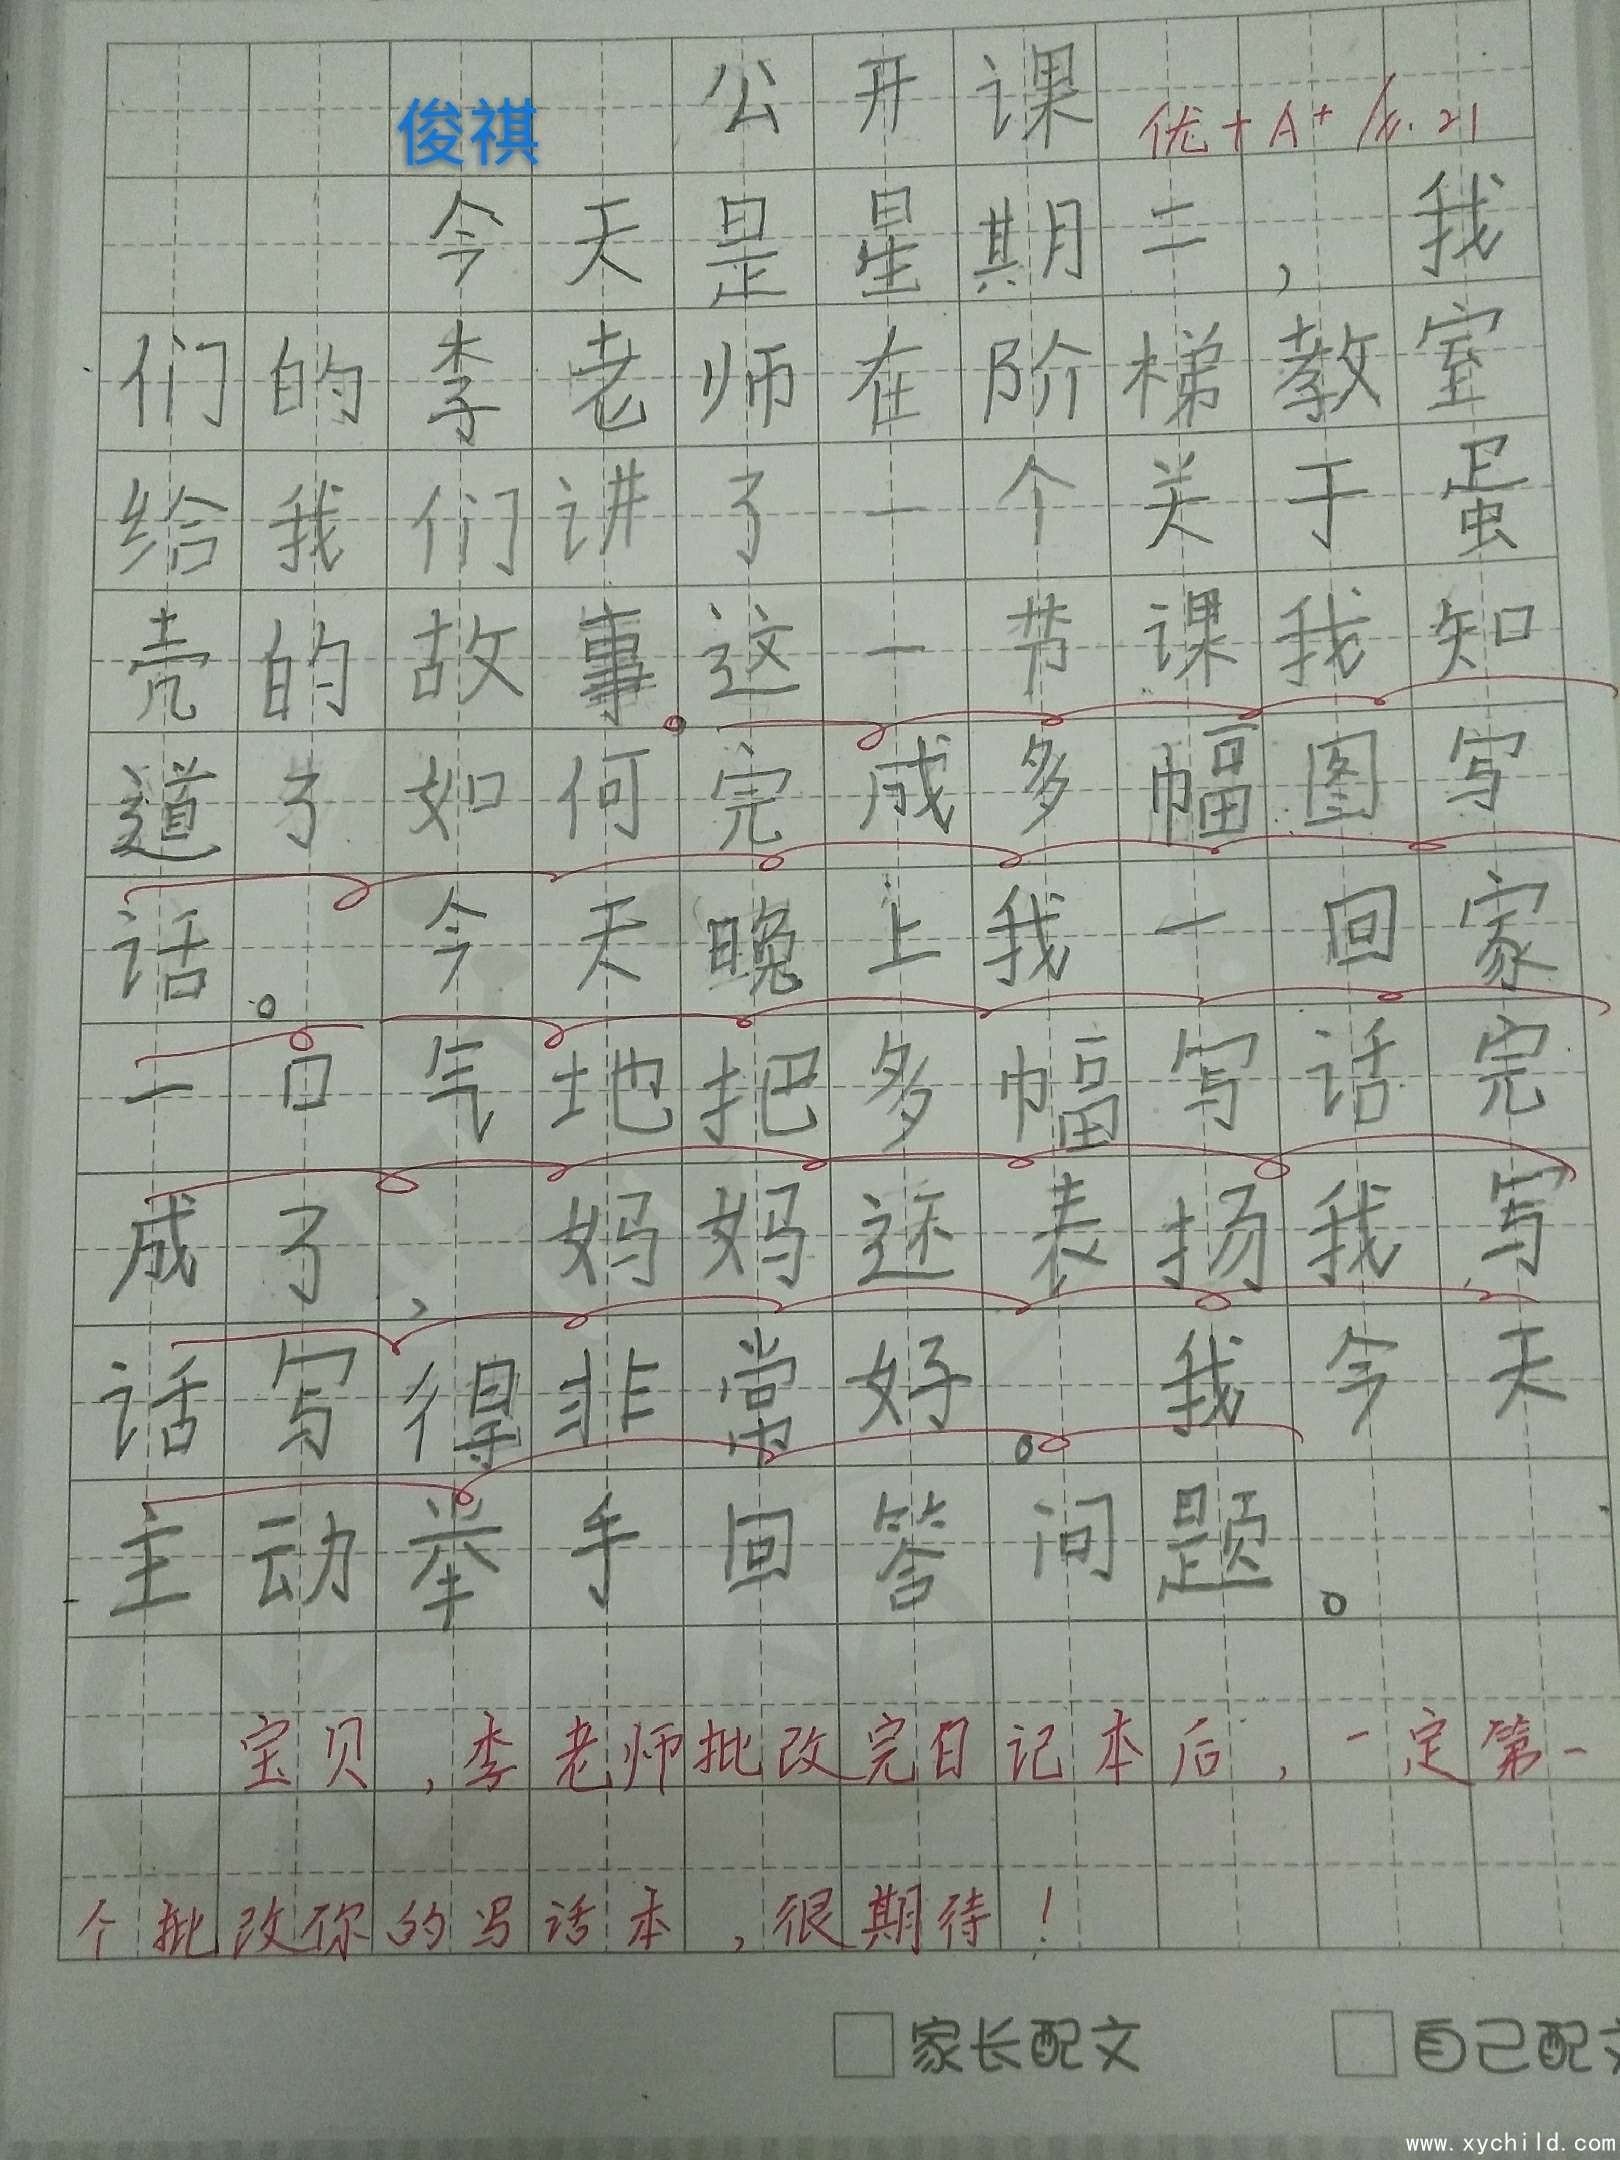 公开课
俊祺
优+ A+ 11.21
今天是星期二，我
们的李老师在阶梯教室
给我们讲了一个关于蛋
壳的故事。这一节课我知
道了如何完成多幅图写
话。今天晚上我一回家
一口气地把多幅写话完
成了，妈妈还表扬我写
话写得非常好。我今天
主动举手回答问题。
宝贝，李老师批改完日记本后，一定第一
个批改你的写话本，很期待！
家长配文
自己配文
www.xychild.com